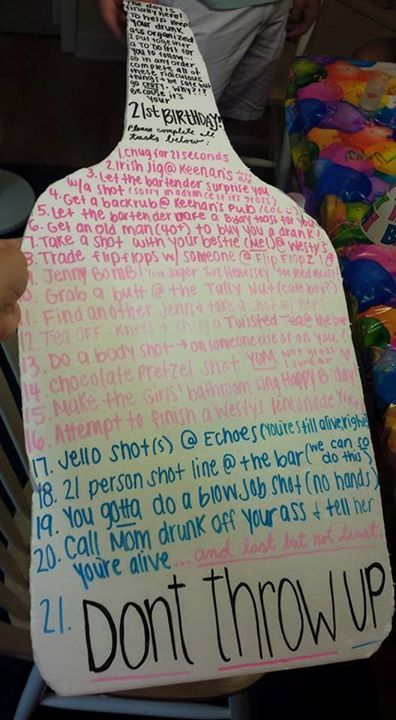 The day is
finally here!
To help keep
your drunk
ass organized
I put together
a TO DO list for
you to follow...
so in any order
complete all of
these ridiculous
things! be safe but
go crazy. Why?!?
Because it's
your
21st BIRTHDAY!
Please complete all
tasks below:
1. Chug for 21 seconds
2. Irish Jig @ Keenan's
3. Let the bartender surprise you
w/a shot (sorry in advance if it's gross)
4. Get a backrub @ Keenan's Pub
5. Let the bartender make a Bday toast for you
6. Get an old man (40+) to buy you a drink!
7. Take a shot with your bestie (ME!) @ Westy's
8. Trade flipflops w/ someone @ Flip Flopz
9. Jenny Bomb! Jager Hennessy Red Bull
10. Grab a butt @ the Tally Nut (cute boy?)
11. Find another Jenn & take a shot w/ her!
12. Tea OFF: Kneel & chug a Twisted Tea @ the bar
13. Do a body shot → on someone else or on you!
14. Chocolate Pretzel shot YUM Not gross I swear
15. Make the Girls' bathroom sing Happy B-day
16. Attempt to finish a Westy's lemonade
17. Jello shot(s) @ Echoes (You're still alive, right)
18. 21 person shot line @ the bar (we can so
do this)
19. You gotta do a blowjob shot (no hands)
20. Call Mom drunk off your ass & tell her
you're alive ... and last but not least,
21. Dont throw UP